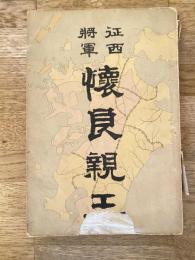 征西
將軍
懷良親王